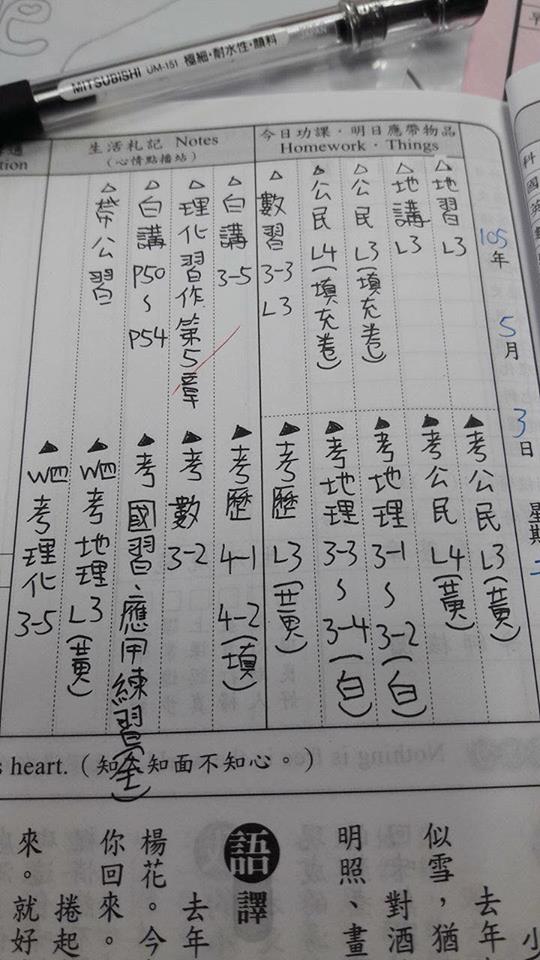 MITSUBISHI UM-151 極細・耐水性・顔料
今日功課・明日應帶物品
Homework・Things
生活札記 Notes
(心情點播站)
105年5月3日
星期二
△地習 L3
△地講 L3
△公民 L3(填充卷)
△公民 L4(填充卷)
△數習 3-3 L3
△白講 3-5
△理化習作 第5章
△白講 P50~P54
△帶公習
▲考公民 L3(黃)
▲考公民 L4(黃)
▲考地理 3-1~3-2(白)
▲考地理 3-3~3-4(白)
▲考歷 L3(黃)
▲考歷 4-1 4-2(填)
▲考數 3-2
▲考國習、應用練習(全)
▲W四考地理 L3(黃)
▲W四考理化 3-5
heart.(知人知面不知心。)
語譯
去年
似雪，猶
對酒
明照、畫
去年
楊花。今
你回來。
捲起
來。就好